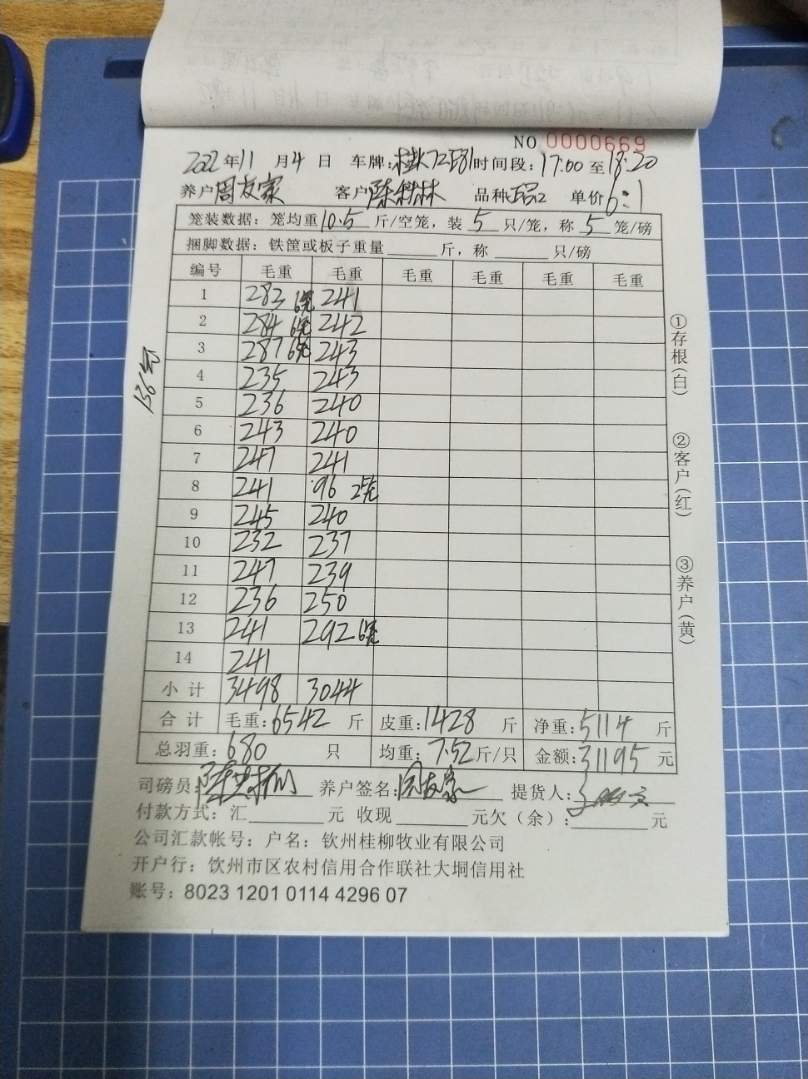 NO 0000669
2022年11月4日 车牌:桂K72581 时间段:17:00至18:20
养户 周友家 客户 陈科林 品种 单价 6:1
笼装数据:笼均重10.5斤/空笼,装5只/笼,称5笼/磅
捆脚数据:铁筐或板子重量____斤,称____只/磅
编号 毛重 毛重 毛重 毛重 毛重
1 283 6笼 241
2 284 6笼 242
3 287 6笼 243
4 235 243
5 236 240
6 243 240
7 247 241
8 241 96 2笼
9 245 240
10 232 237
11 247 239
12 236 250
13 241 292 6笼
14 241
小计 3498 3044
合计 毛重:6542斤 皮重:1428斤 净重:5114斤
总羽重:680只 均重:7.52斤/只 金额:31195元
司磅员: 养户签名:周友家 提货人:
付款方式:汇____元 收现____元欠(余):____元
公司汇款帐号:户名:钦州桂柳牧业有限公司
开户行:钦州市区农村信用合作联社大垌信用社
账号:8023 1201 0114 4296 07
136笼
①存根(白)
②客户(红)
③养户(黄)